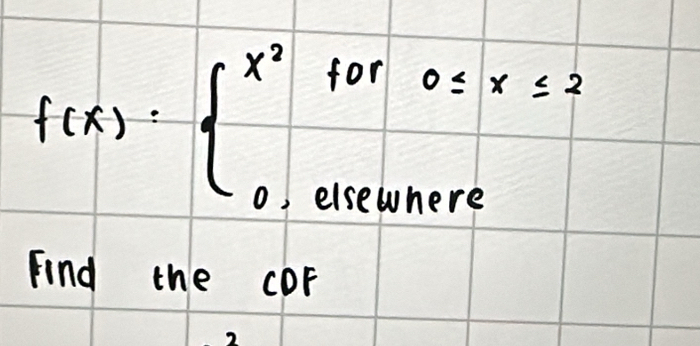 x² for 0 ≤ x ≤ 2
f(x) :
0, elsewhere
Find the CDF
2